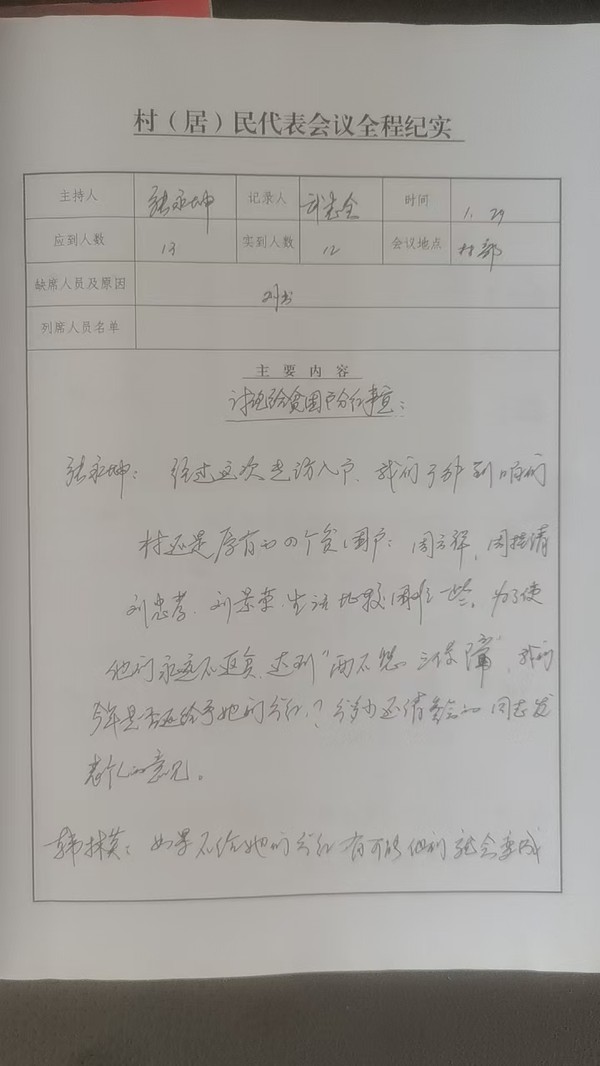 村（居）民代表会议全程纪实
主持人 张永坤 记录人 全 时间 1.29
应到人数 13 实到人数 12 会议地点 村部
缺席人员及原因 刘书
列席人员名单
主要内容
讨论给贫困户分红事宜：
张永坤：经过这次走访入户，我们了解到咱们
村还是原有的四个贫困户：周方祥，周振清
刘忠孝，刘景荣，生活比较困难一些，为了使
他们永远不返贫，达到“两不愁三保障”，我们
今年是否还给予她们分红？分多少还请参会的同志发
表个人的意见。
韩林英：如果不给她们分红有可能他们就会变成